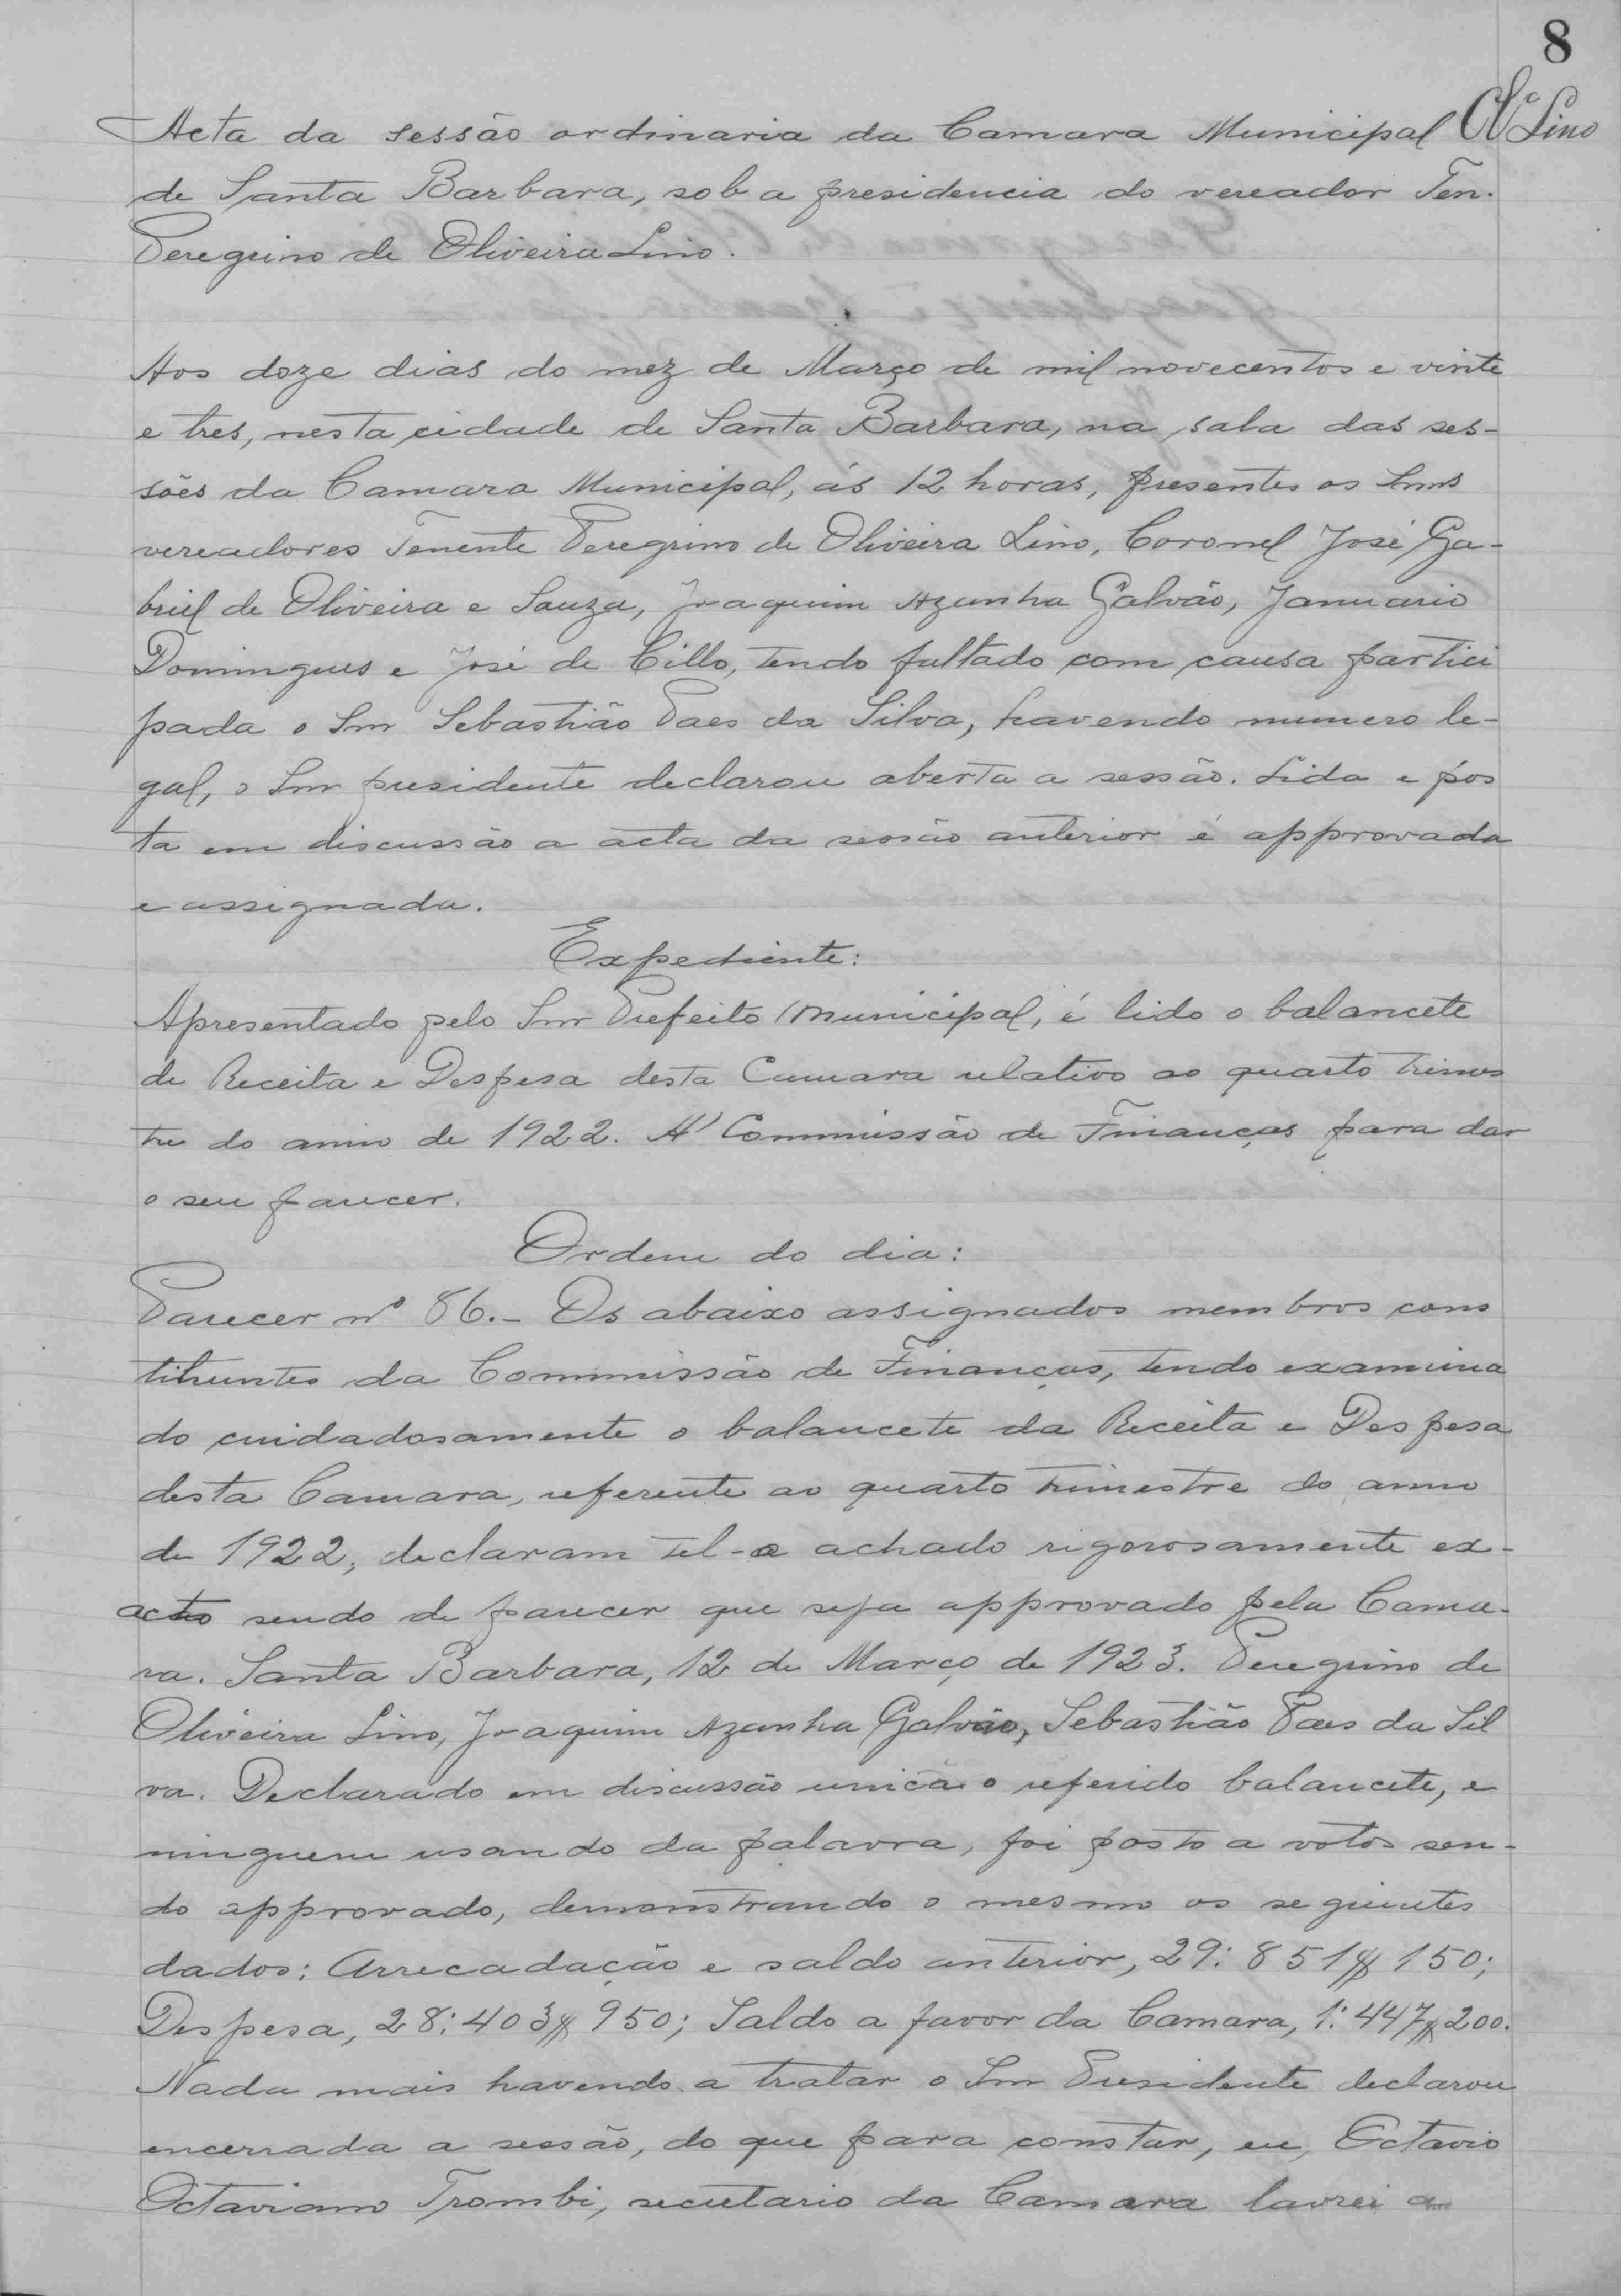 8
Acta da sessão ordinaria da Camara Municipal Lino
de Santa Barbara, sob a presidencia do vereador Ten.
Peregrino de Oliveira Lino.
Aos doze dias do mez de Março de mil novecentos e vinte
e tres, nesta cidade de Santa Barbara, na sala das ses-
sões da Camara Municipal, ás 12 horas, presentes os Snrs
vereadores Tenente Peregrino de Oliveira Lino, Coronel José Ga-
briel de Oliveira e Souza, Joaquim Azanha Galvão, Januario
Domingues e José de Cillo, tendo faltado com causa partici
pada o Snr Sebastião Paes da Silva, havendo numero le-
gal, o Snr presidente declarou aberta a sessão. Lida e pos
ta em discussão a acta da sessão anterior é approvada
e assignada.
Expediente:
Apresentado pelo Snr Prefeito Municipal, é lido o balancete
de Receita e Despesa desta Camara relativo ao quarto trimes
tre do anno de 1922. A' Commissão de Finanças para dar
o seu parecer.
Ordem do dia:
Parecer nº 86.- Os abaixo assignados membros cons
tituintes da Commissão de Finanças, tendo examina
do cuidadosamente o balancete da Receita e Despesa
desta Camara, referente ao quarto trimestre do anno
de 1922, declaram tel-o achado rigorosamente ex-
acto sendo de parecer que seja approvado pela Cama-
ra. Santa Barbara, 12 de Março de 1923. Peregrino de
Oliveira Lino, Joaquim Azanha Galvão, Sebastião Paes da Sil
va. Declarado em discussão unica o referido balancete, e
ninguem usando da palavra, foi posto a votos sen-
do approvado, demonstrando o mesmo os seguintes
dados: Arrecadação e saldo anterior, 29:851$150;
Despesa, 28:403$950; Saldo a favor da Camara, 1:447$200.
Nada mais havendo a tratar o Snr Presidente declarou
encerrada a sessão, do que para constar, eu, Octavio
Octaviano Trombi, secretario da Camara lavrei a